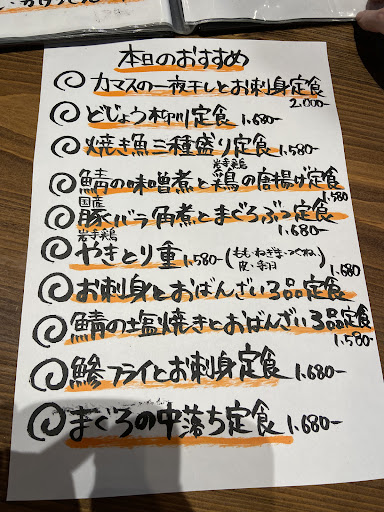 本日のおすすめ
カマスの一夜干しとお刺身定食
2.000-
どじょう柳川定食 1.680-
焼き魚三種盛り定食 1.580-
岩手鶏
鯖の味噌煮と鶏の唐揚げ定食
1.580
国産
豚バラ角煮とまぐろぶつ定食
1.680-
岩手鶏
やきとり重 1.580- (もも・ねぎま・つくね、
皮・)
1.680
お刺身とおばんざい3品定食
鯖の塩焼きとおばんざい3品定食
1.580-
鯵フライとお刺身定食 1.680-
まぐろの中落ち定食 1.680-